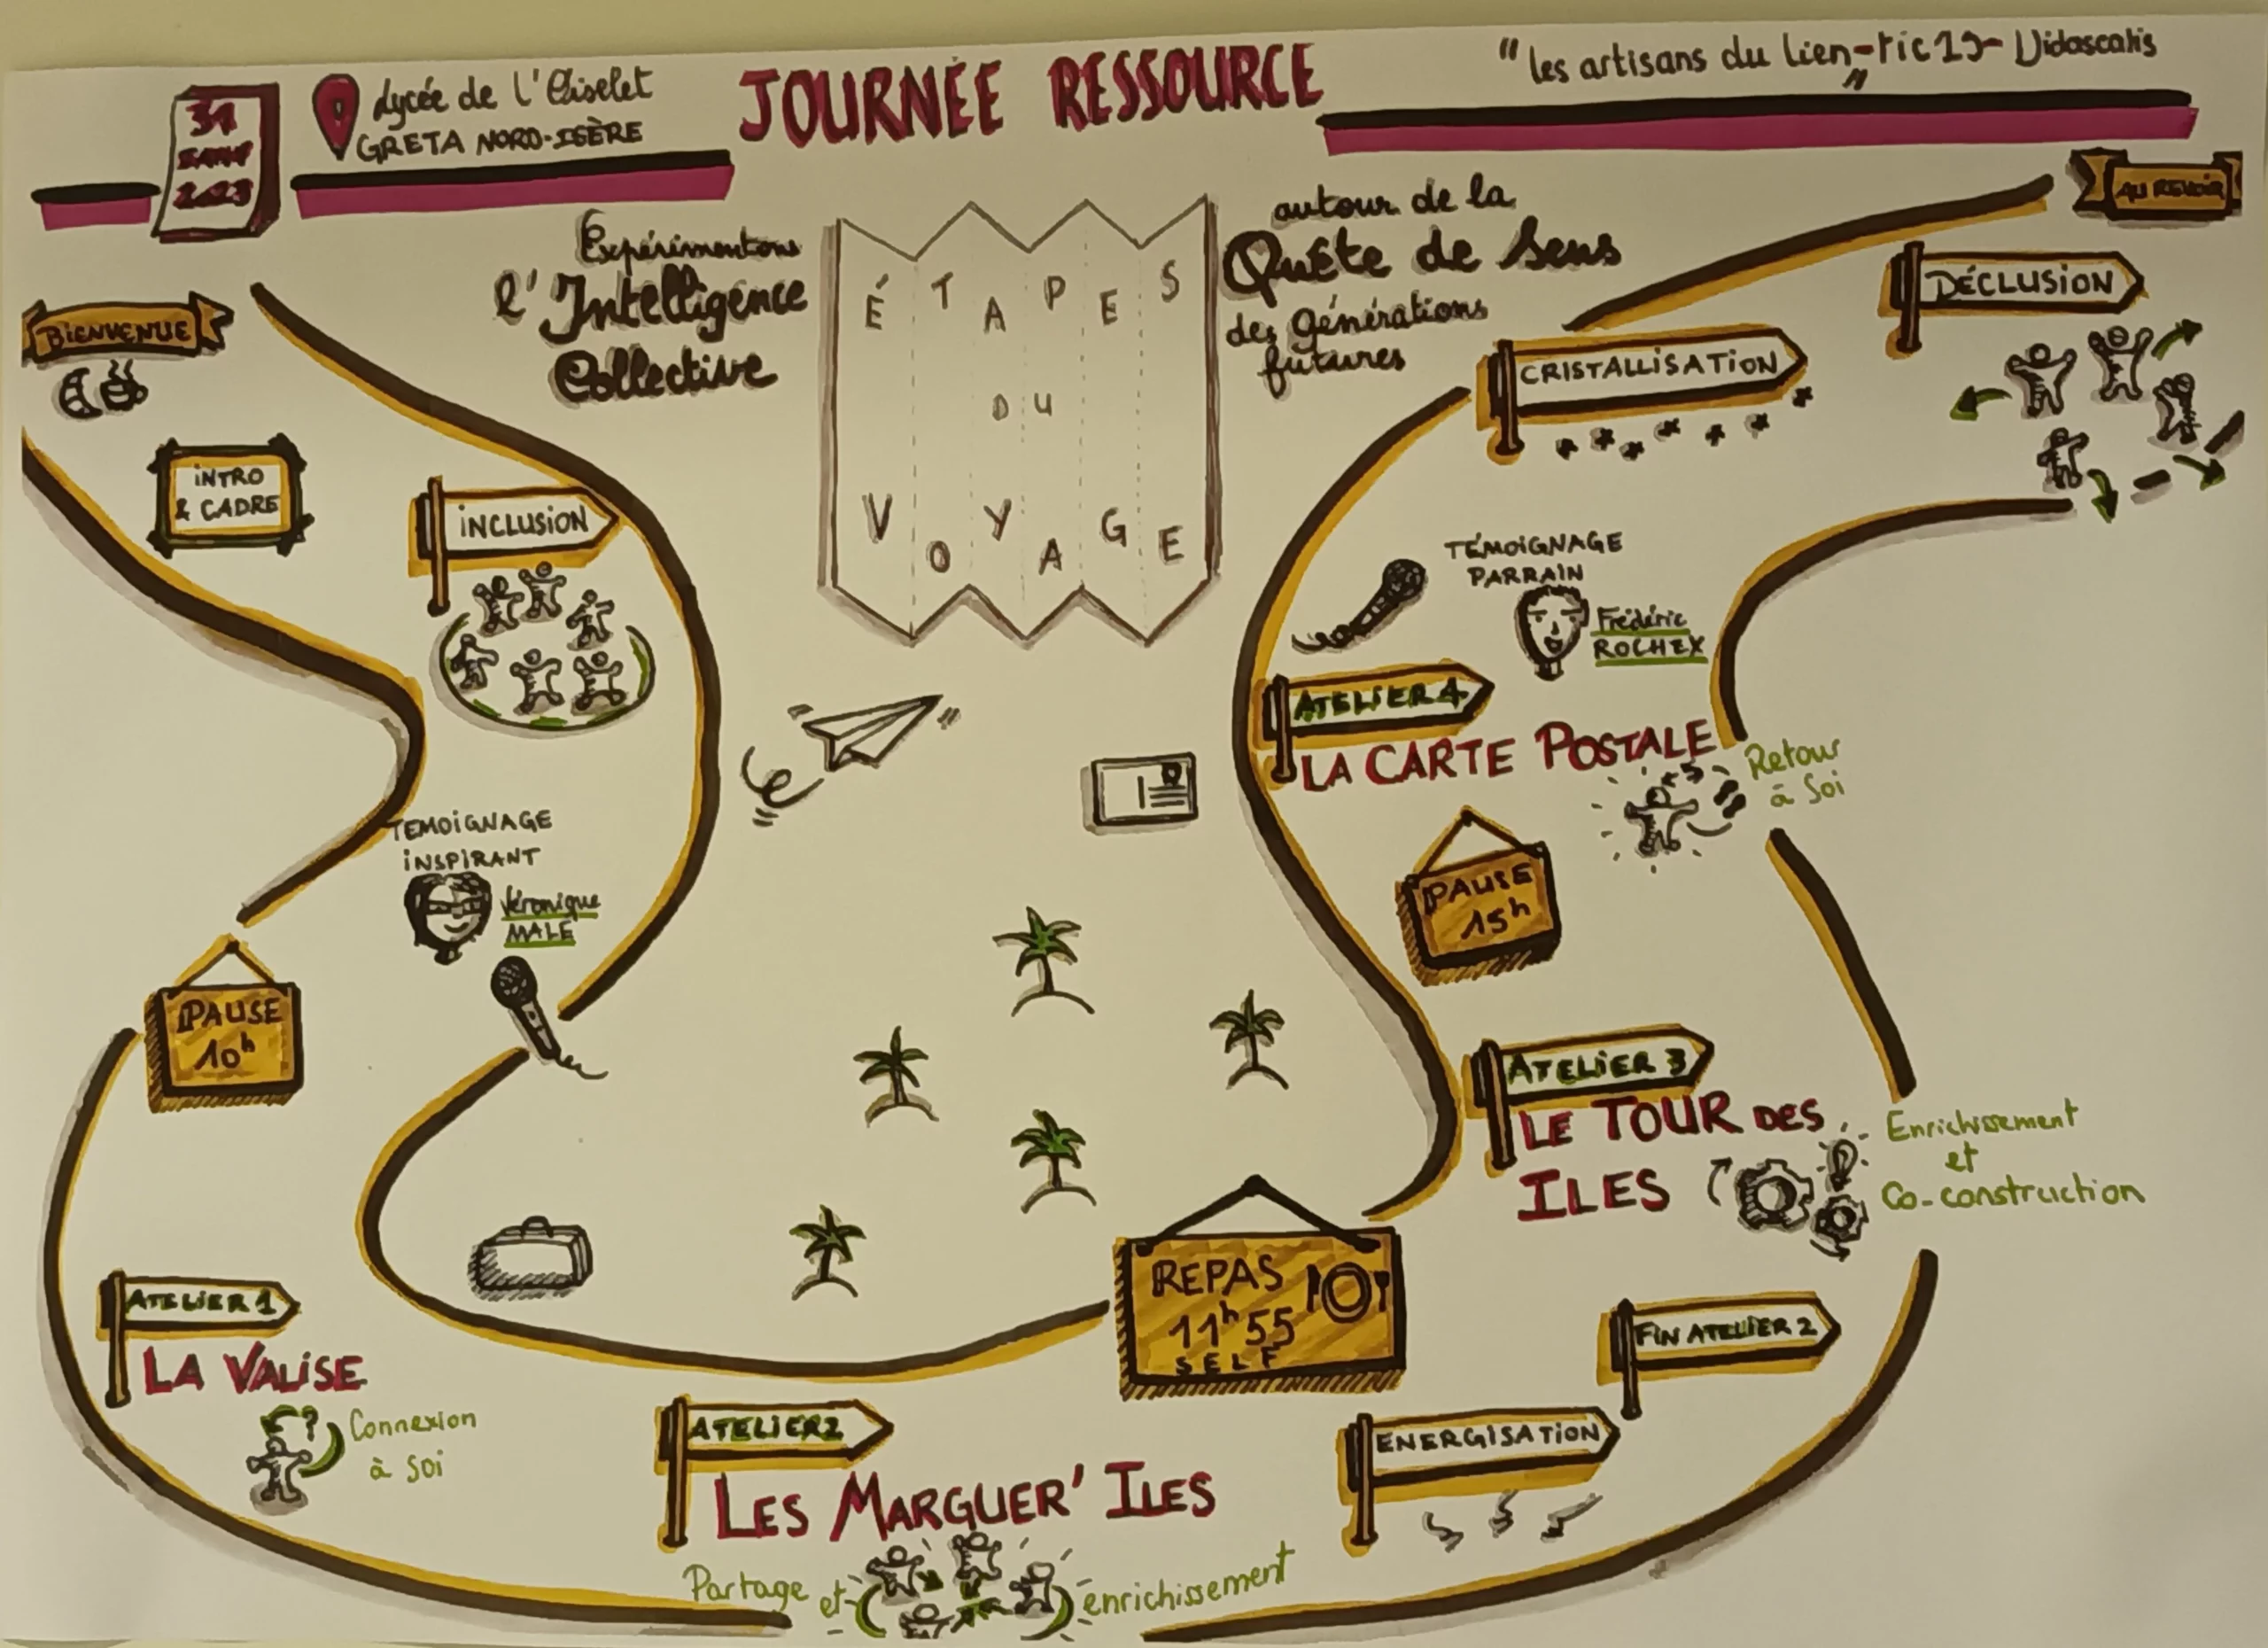 31
JANV
2023
Lycée de l'Oiselet
GRETA NORD-ISÈRE
JOURNÉE RESSOURCE
"les artisans du lien" - FIC19 - Didascalis
Expérimentons
l'Intelligence
Collective
ÉTAPES
DU
VOYAGE
autour de la
Quête de Sens
des générations
futures
BIENVENUE
INTRO
& CADRE
INCLUSION
TEMOIGNAGE
INSPIRANT
Véronique
MALE
PAUSE
10h
ATELIER 1
LA VALISE
Connexion
à Soi
ATELIER 2
LES MARGUER' ILES
Partage et enrichissement
REPAS
11h55
SELF
ENERGISATION
FIN ATELIER 2
ATELIER 3
LE TOUR DES
ILES
Enrichissement
et
Co-construction
PAUSE
15h
ATELIER 4
LA CARTE POSTALE
Retour
à Soi
TÉMOIGNAGE
PARRAIN
Frédéric
ROCHEX
CRISTALLISATION
DÉCLUSION
AU REVOIR